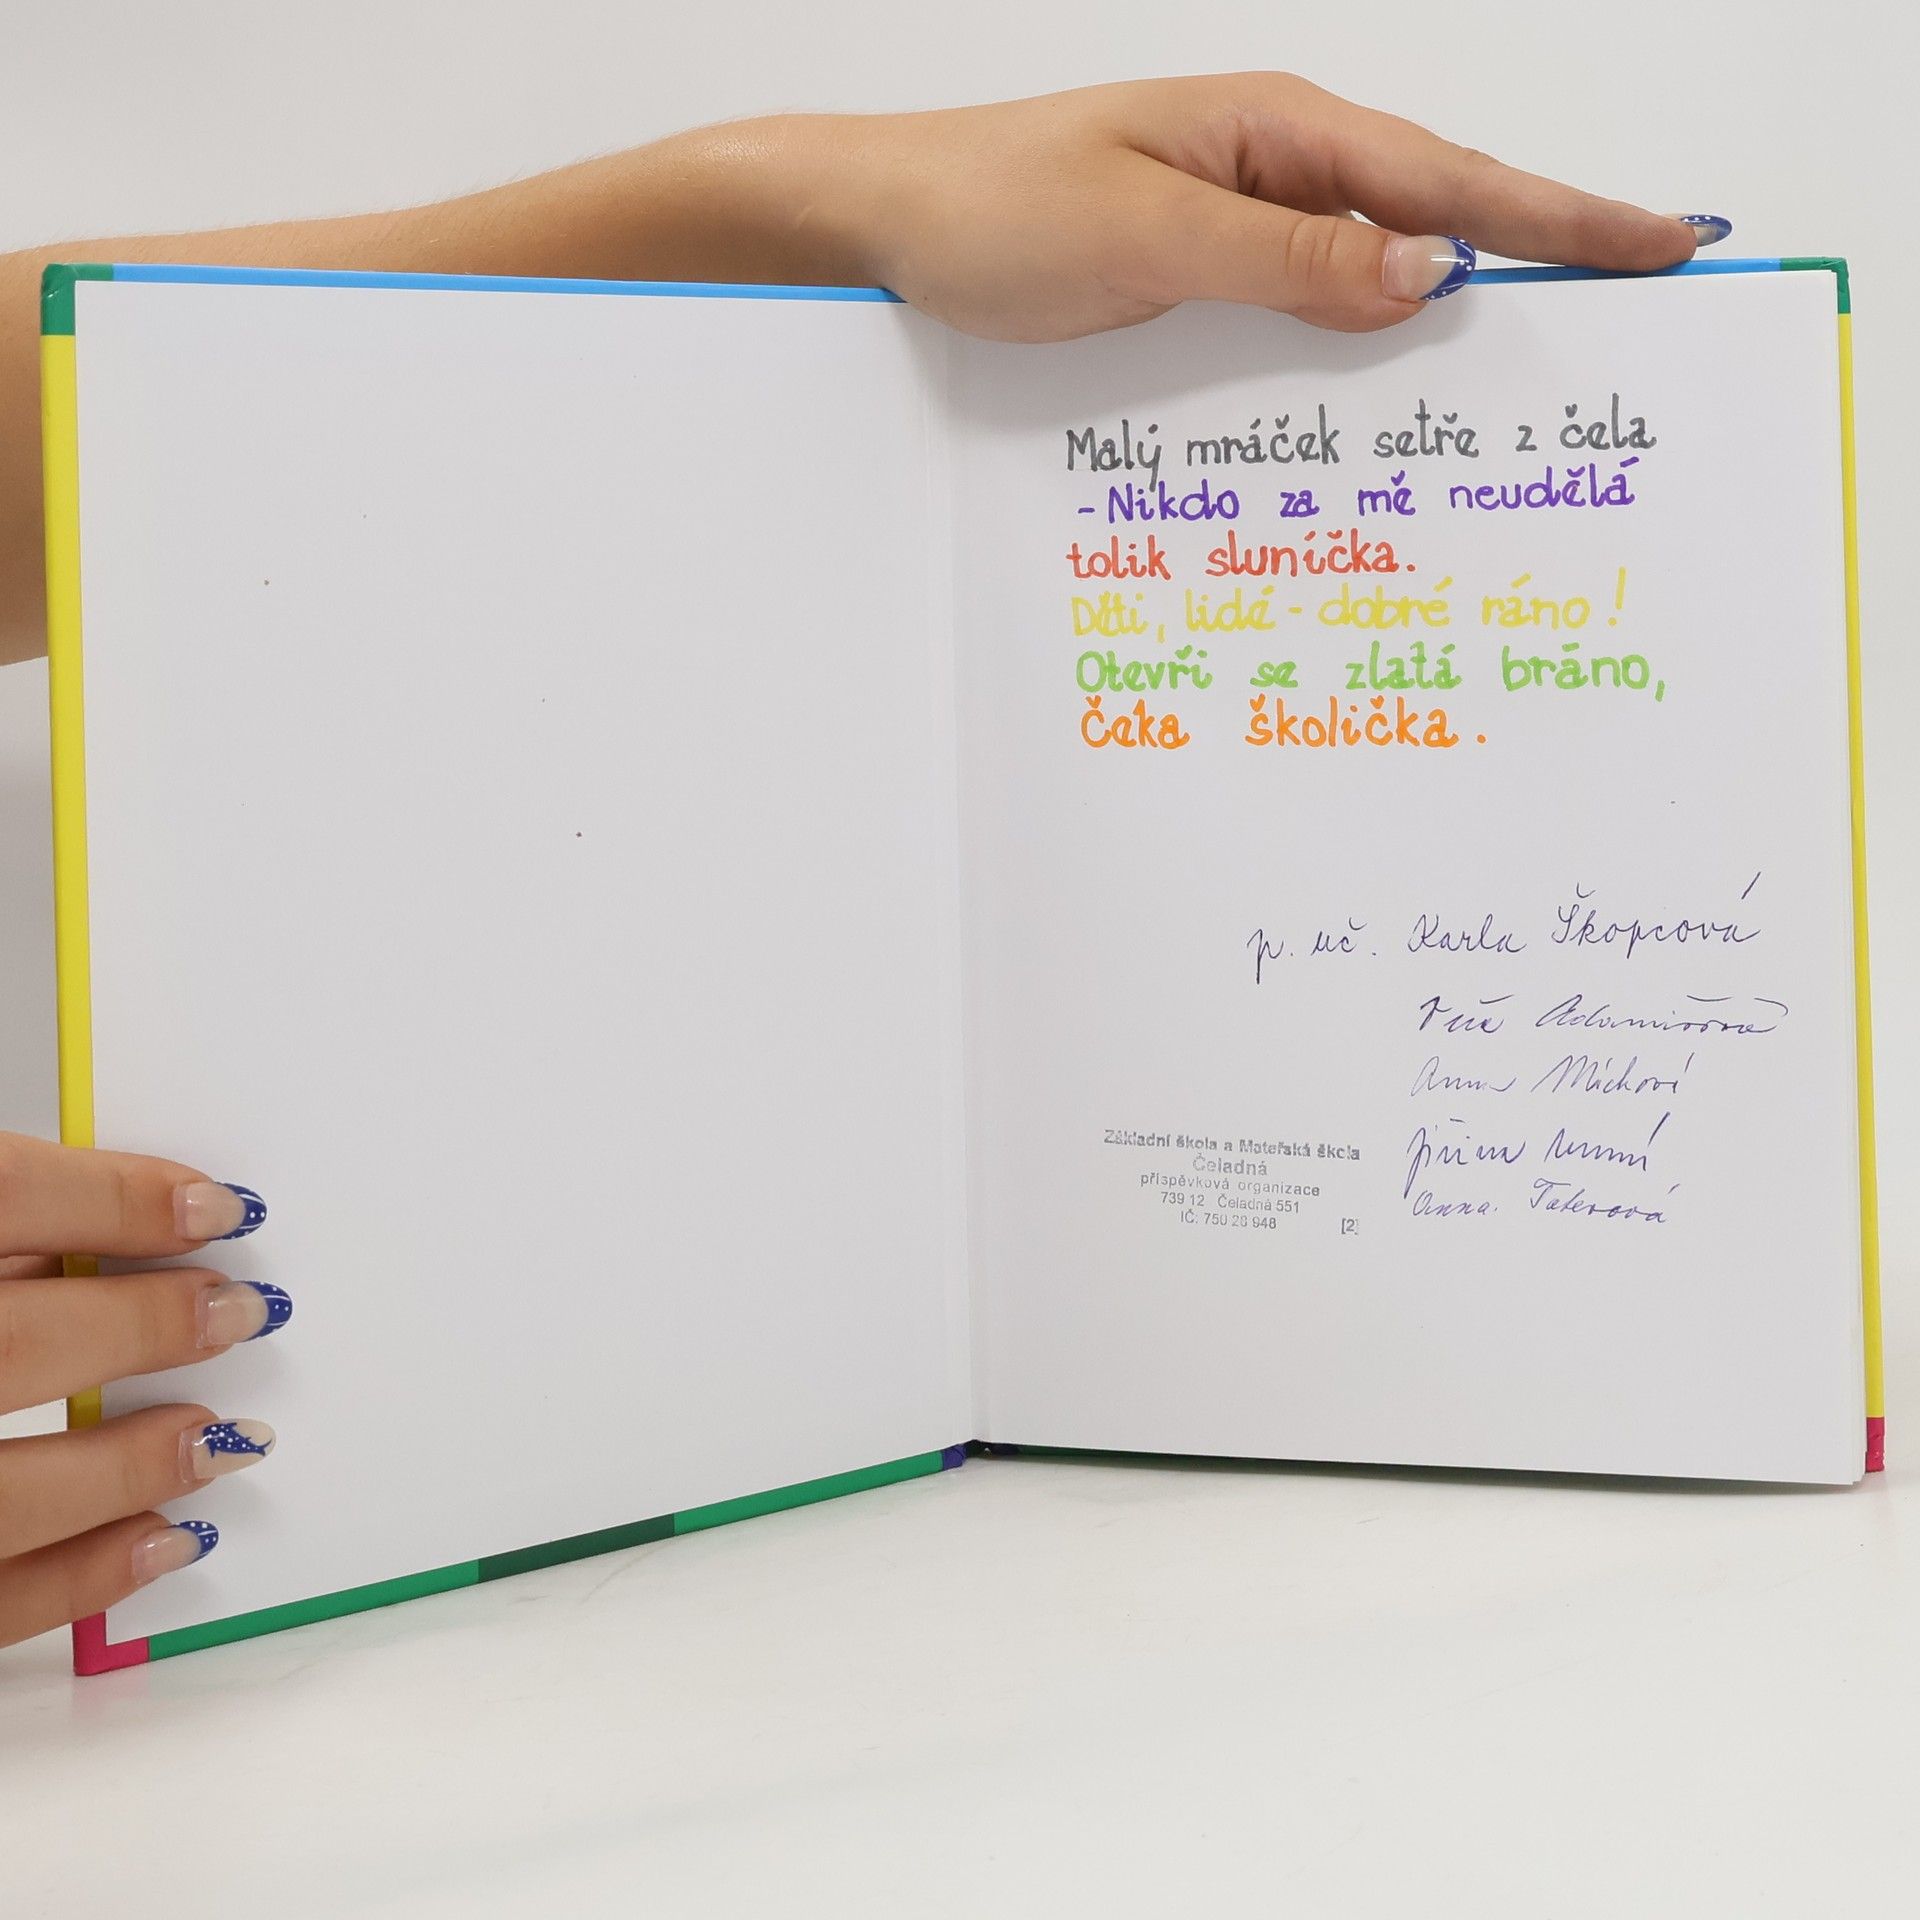 Malý mráček setře z čela
- Nikdo za mě neudělá
tolik sluníčka.
Děti, lidé - dobré ráno!
Otevři se zlatá bráno,
Čeká školička.
p. uč. Karla Škopcová
Anna Míchová
Jiřina
Anna Taterová
Základní škola a Mateřská škola
Čeladná
příspěvková organizace
739 12 Čeladná 551
IČ: 750 28 948 [2]